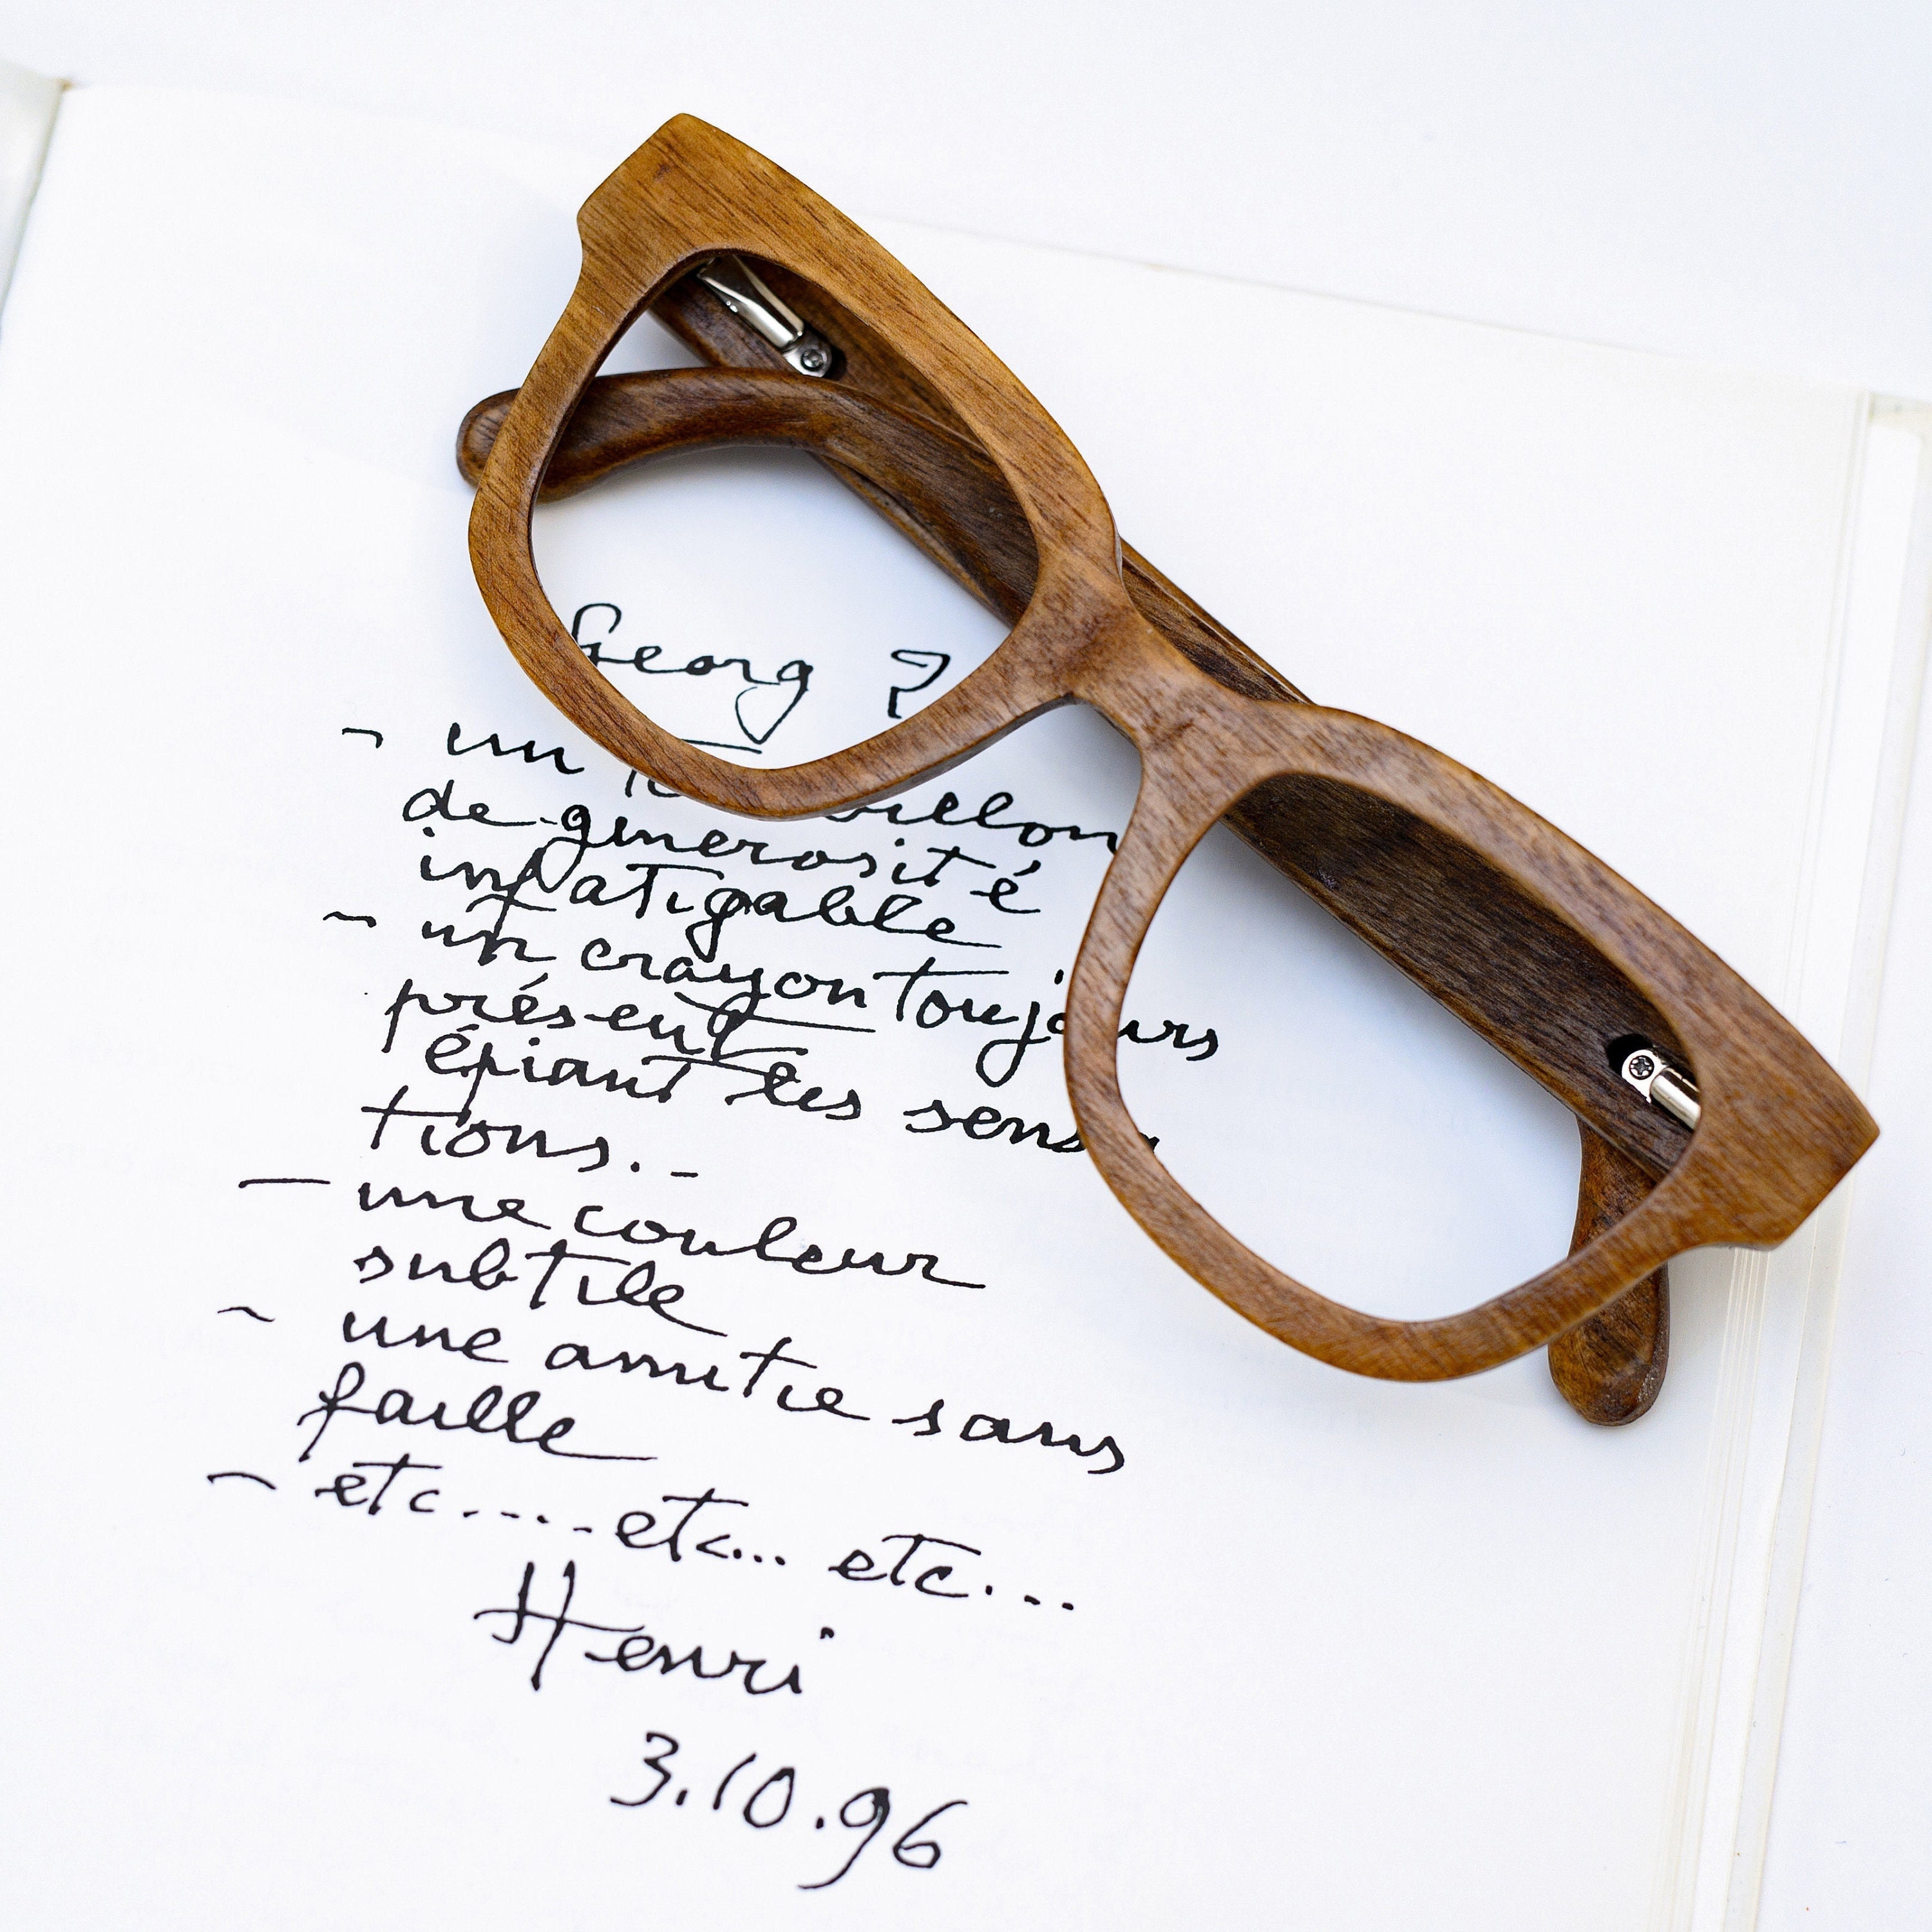 Georg ?
- un
de generosité
infatigable
- un crayon toujours
présent
épiant les sensa
tions. -
- une couleur
subtile
- une amitie sans
faille
- etc..... etc... etc...
Henri
3.10.96